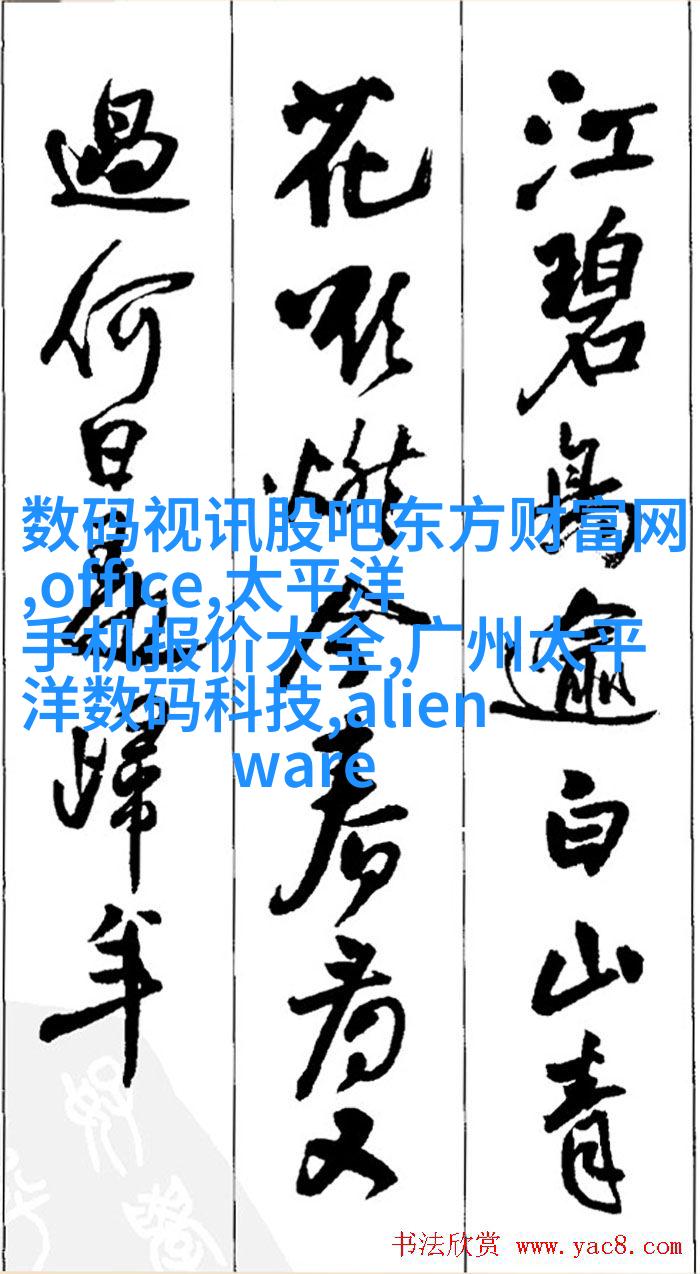 江碧鸟逾白山青
花欲燃今春看又
過何日是歸年
数码视讯股吧东方财富网
,office,太平洋
手机报价大全,广州太平
洋数码科技,alien
ware
书法欣赏 www.yac8.com